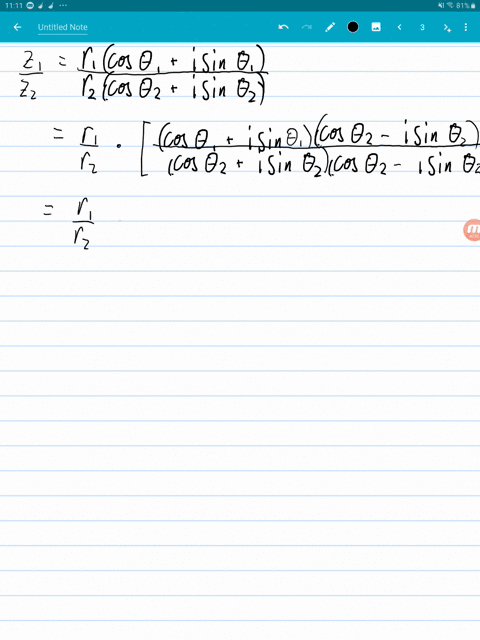 11:11 81%
Untitled Note 3
z₁/z₂ = r₁(cos θ₁ + i sin θ₁)/r₂(cos θ₂ + i sin θ₂)
= r₁/r₂ · [(cos θ₁ + i sin θ₁)(cos θ₂ − i sin θ₂)/(cos θ₂ + i sin θ₂)(cos θ₂ − i sin θ₂
= r₁/r₂